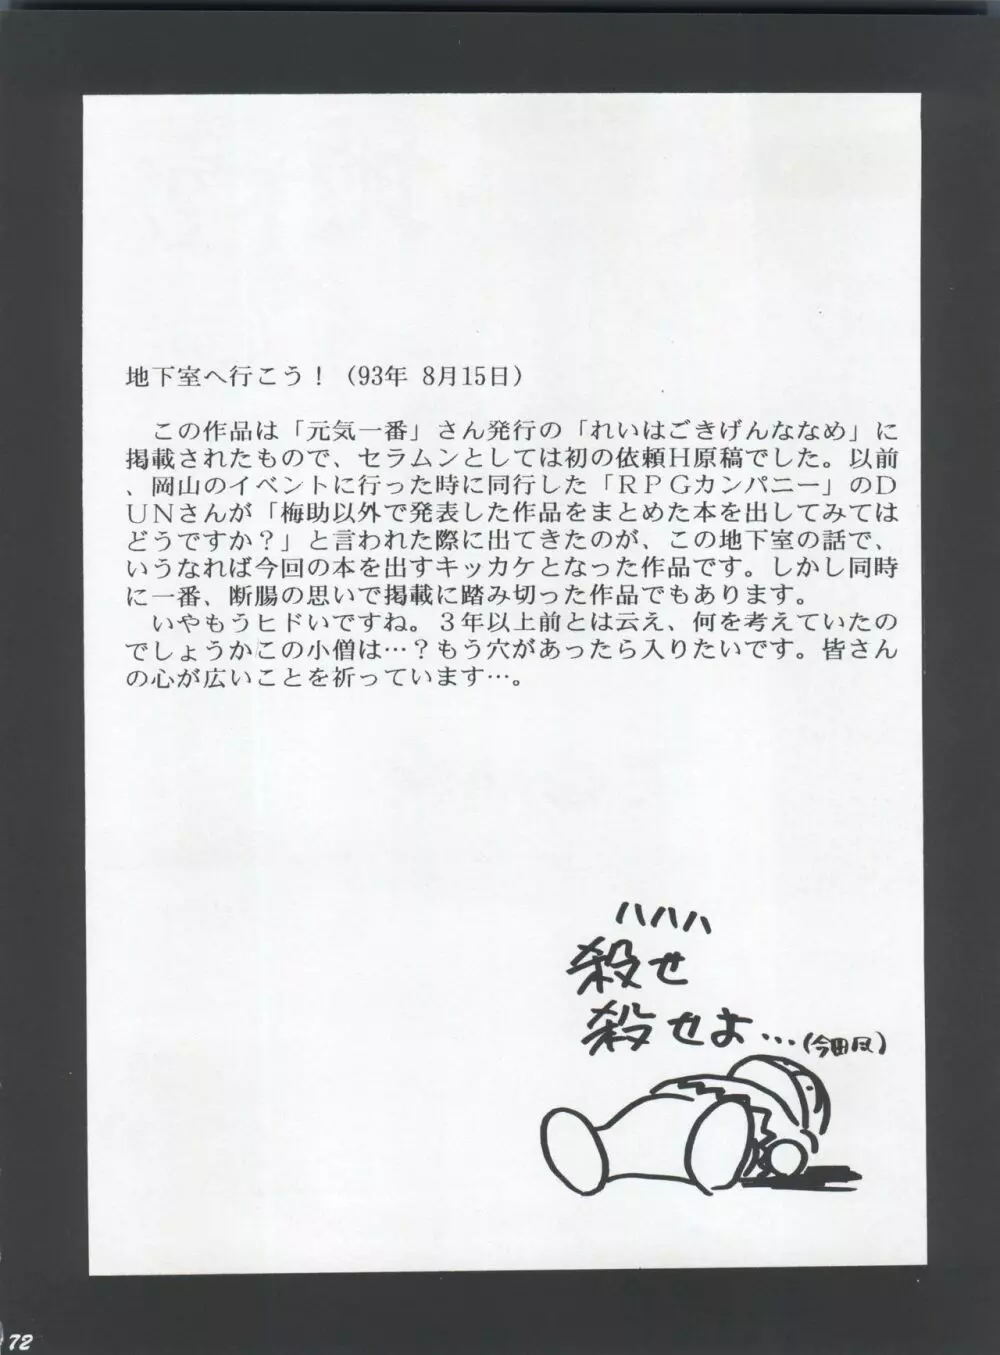 地下室へ行こう！（93年 8月15日）
　この作品は「元気一番」さん発行の「れいはごきげんななめ」に
掲載されたもので、セラムンとしては初の依頼Ｈ原稿でした。以前
、岡山のイベントに行った時に同行した「ＲＰＧカンパニー」のＤ
ＵＮさんが「梅助以外で発表した作品をまとめた本を出してみては
どうですか？」と言われた際に出てきたのが、この地下室の話で、
いうなれば今回の本を出すキッカケとなった作品です。しかし同時
に一番、断腸の思いで掲載に踏み切った作品でもあります。
　いやもうヒドいですね。３年以上前とは云え、何を考えていたの
でしょうかこの小僧は…？もう穴があったら入りたいです。皆さん
の心が広いことを祈っています…。
ハハハ
殺せ
殺せよ…
72